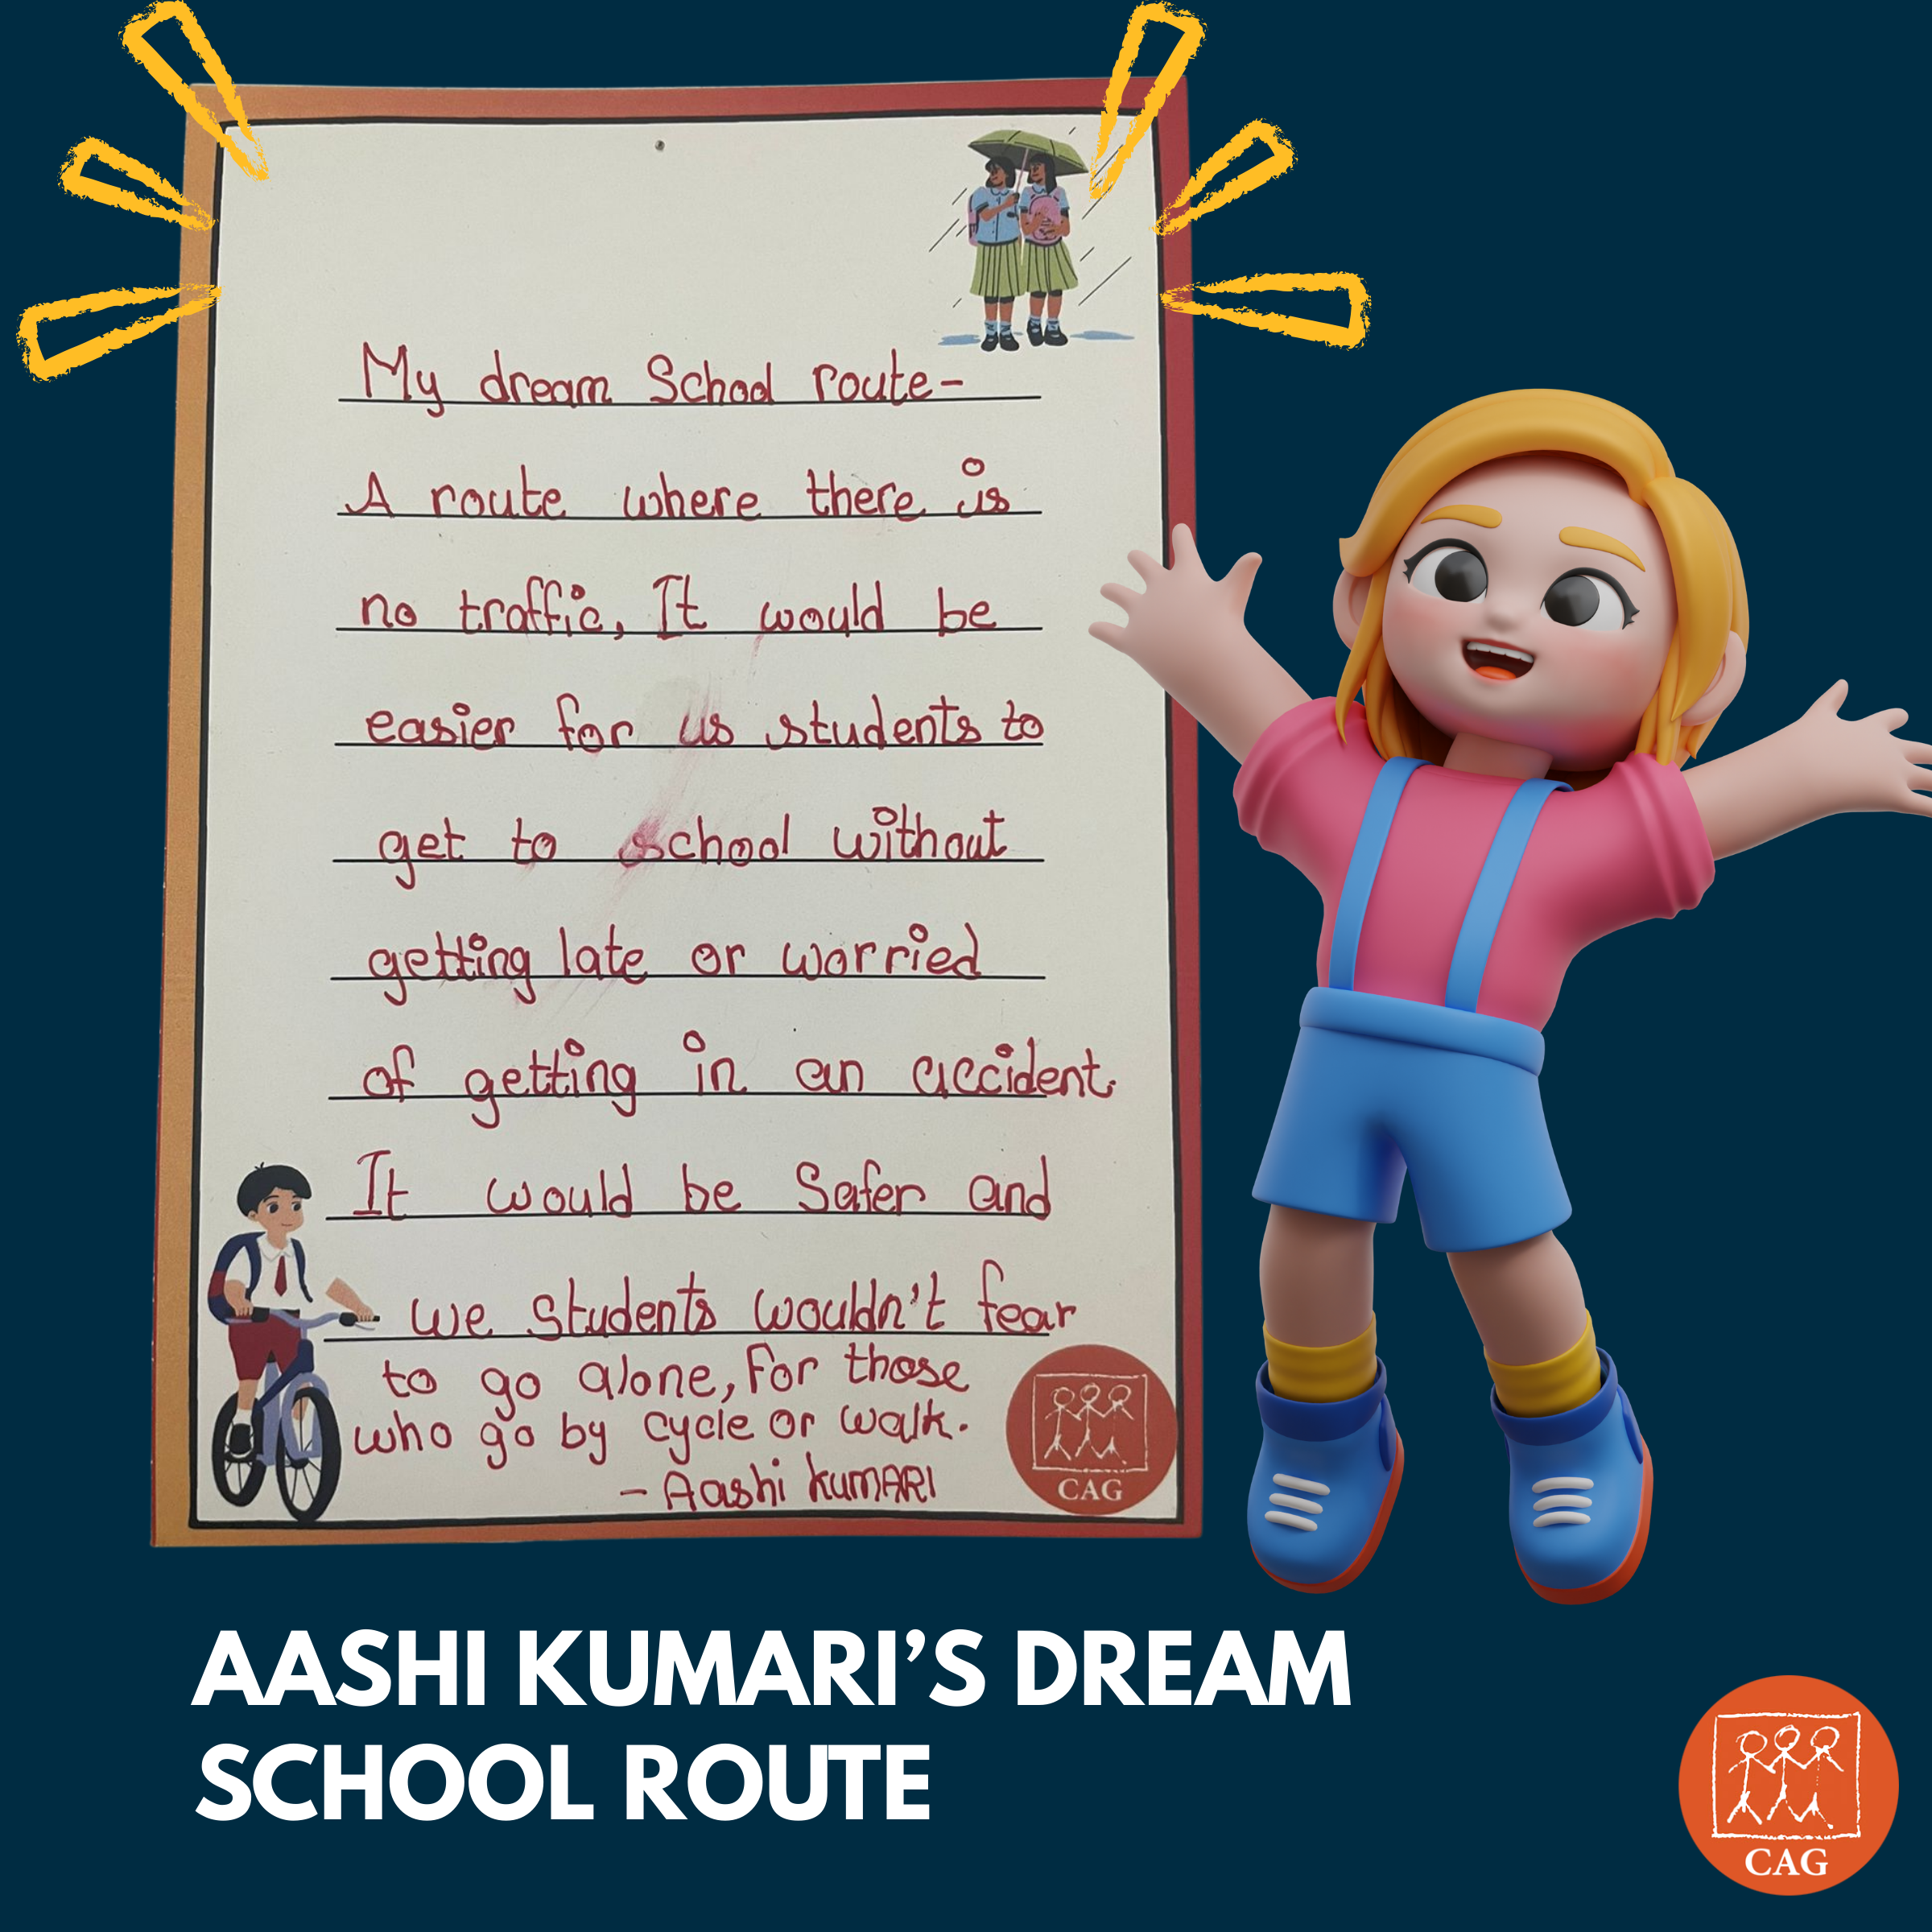 My dream School route-
A route where there is
no traffic, It would be
easier for us students to
get to school without
getting late or worried
of getting in an accident.
It would be Safer and
we Students wouldn't fear
to go alone, For those
who go by cycle or walk.
- Aashi kumARI
CAG
AASHI KUMARI'S DREAM
SCHOOL ROUTE
CAG